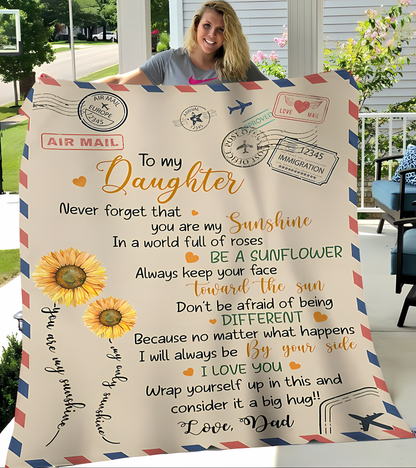 AIR MAIL
EUROPE
12345
AIR MAIL
LOVE MAIL
12345
IMMIGRATION
To my
Daughter
Never forget that
you are my Sunshine
In a world full of roses
BE A SUNFLOWER
Always keep your face
toward the sun
Don't be afraid of being
DIFFERENT
Because no matter what happens
I will always be By your side
I LOVE YOU
Wrap yourself up in this and
consider it a big hug!!
Love, Dad
You are my sunshine
my only sunshine